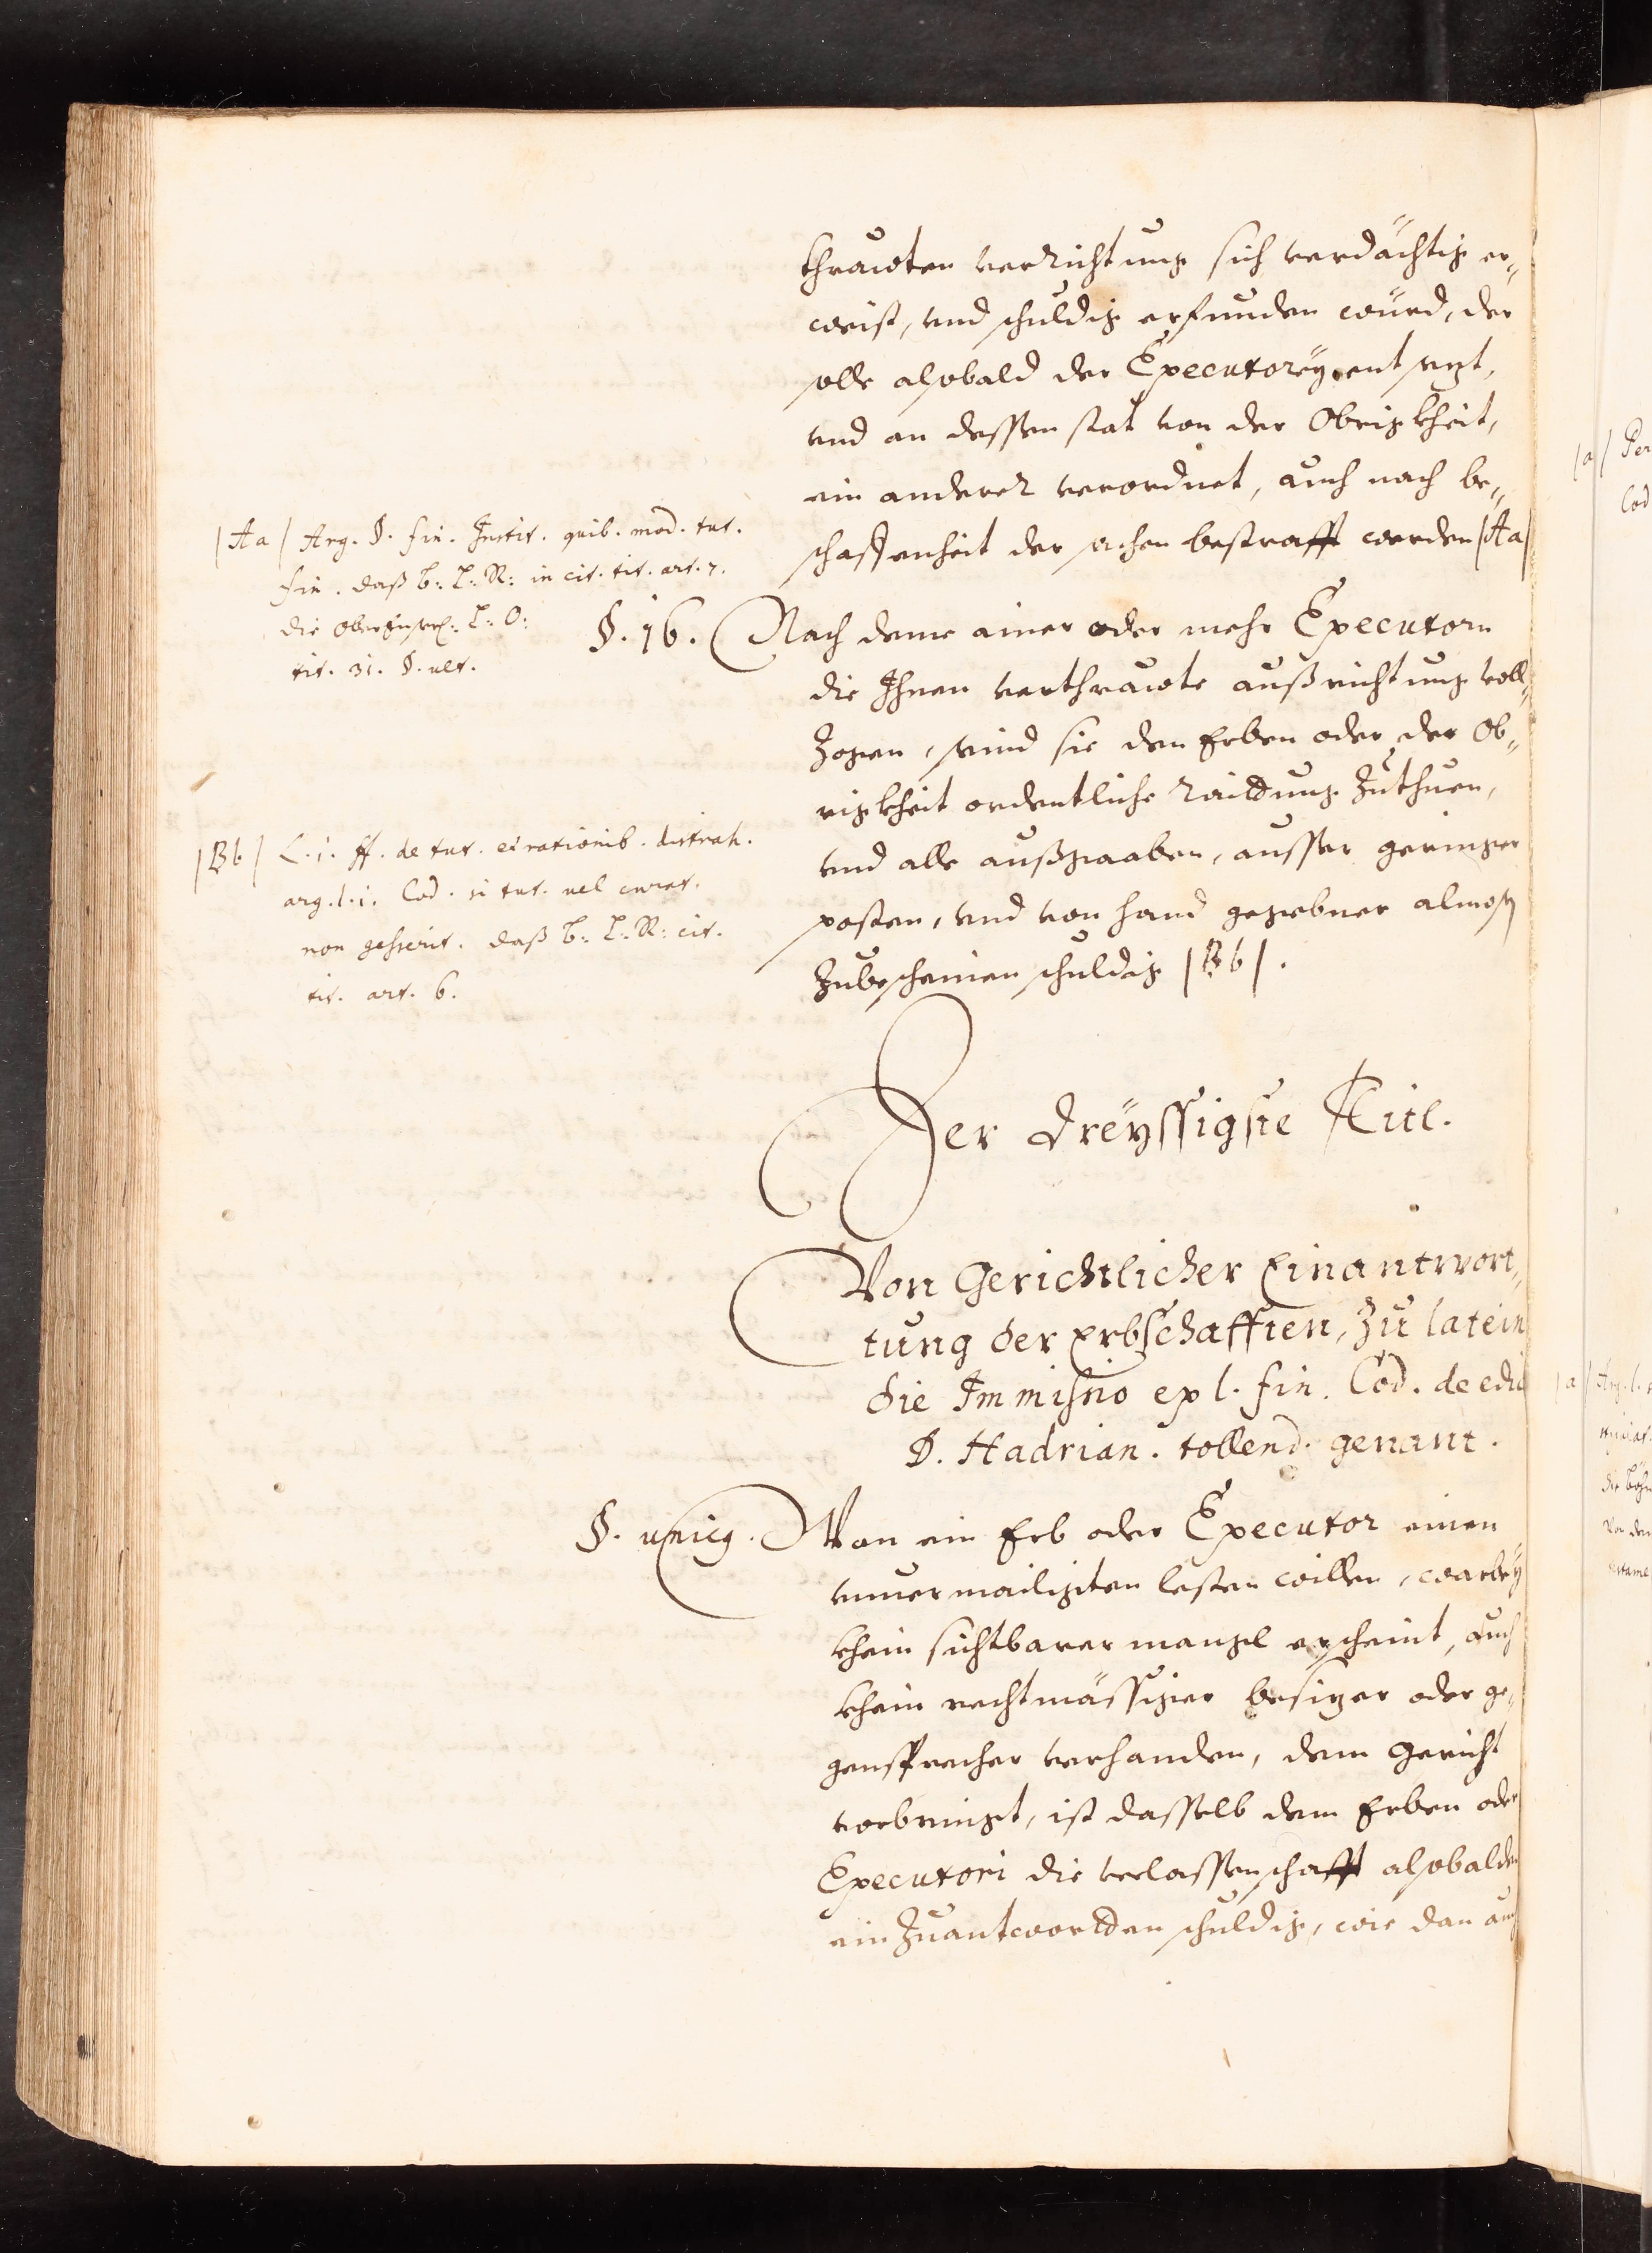 thrawten verrichtung sich verdächtig er„
weist, vnd schuldig erfunden würd, der
solle alsobald der Executoreÿ entsezt,
vnd an dessen stat von der Obrigkheit,
ein anderer verordnet, auch nach be„
schaffenheit der sachen bestrafft werden /Aa/
/Aa/ Arg. §. fin. Instit. quib. mod. tut.
fin. daß b: L: R: in cit. tit. art. 7.
die L: O:
tit. 31. §. ult.
§. 16. Nach deme ainer oder mehr Executorn
die Ihnen verthrawte außrichtung voll„
zogen, seind sie den Erben oder der Ob„
rigkheit ordentliche raittung zuthuen,
vnd alle außgaaben, ausser geringer
posten, vnd von hand gegebner almosen
zubescheinen schuldig /Bb/.
/Bb/ L. 1. ff. de tut. et rationib. distrah.
arg. l. 1. Cod. si tut. vel curat.
non gesserit. daß b: L: R: cit.
tit. art. 6.
Der dreÿssigste Titl.
Von Gerichtlicher Einantwort„
tung der Erbschafften, zu latein
die Immissio ex l. fin. Cod. de edic
D. Hadrian. tollend. genant.
§. unicq. Wan ein Erb oder Executor einen
vnuermailigten lesten willen, warbeÿ
khein sichtbarer mangel erscheint, auch
khein rechtmässiger besizer oder ge„
gensprecher verhanden, dem Gericht
vorbringt, ist dasselb dem Erben oder
Executori die verlassenschafft alsobalden
ein zuantwortten schuldig, wie dan auch
/a/ Per
Cod
/a/ Arg. l.